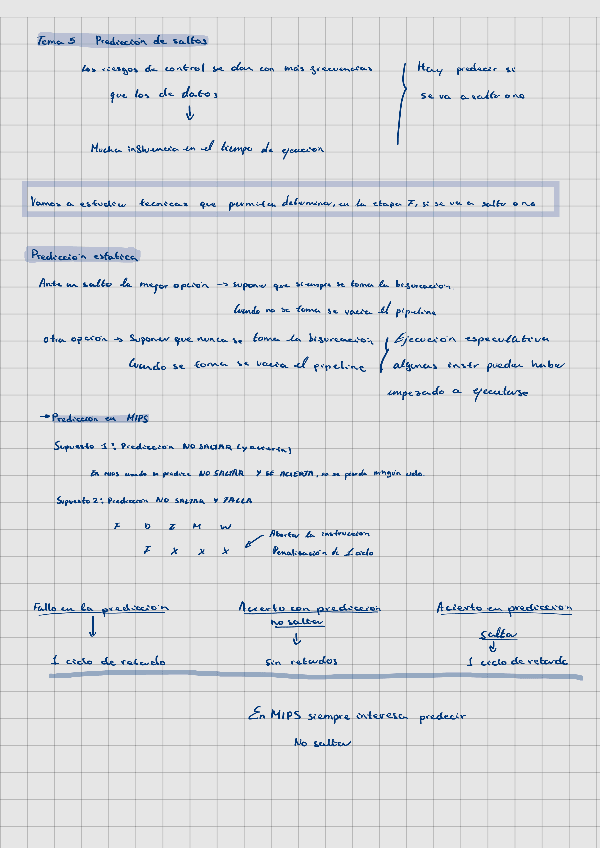 Tema 5 Predicción de saltos
Los riesgos de control se dan con más frecuencias
que los de datos
Hay predecir si
se va a salta o no
↓
Mucha influencia en el tiempo de ejecucion
Vamos a estudiar tecnicas que permitan determinar, en la etapa F, si se va a salta o no
Predicción estatica
Ante un salto la mejor opción → suponer que siempre se toma la bifurcación
Cuando no se toma se vacia el pipeline
otra opción → Suponer que nunca se toma la bifurcación
Cuando se toma se vacia el pipeline
Ejecución especulativa
algunas instr pueden haber
empezado a ejecutarse
→ Prediccion en MIPS
Supuesto 1: Prediccion NO SALTAR (y acierta)
En MIPS cuando se predice NO SALTAR Y SE ACIERTA, no se pierde ningún ciclo.
Supuesto 2: Prediccion NO SALTAR Y FALLA
F D E M W
F X X X
Abortar la instruccion
Penalización de 1 ciclo
Fallo en la prediccion
↓
1 ciclo de retardo
Acierto con prediccion
no saltar
↓
sin retardos
Acierto en prediccion
saltar
↓
1 ciclo de retardo
En MIPS siempre interesa predecir
No saltar